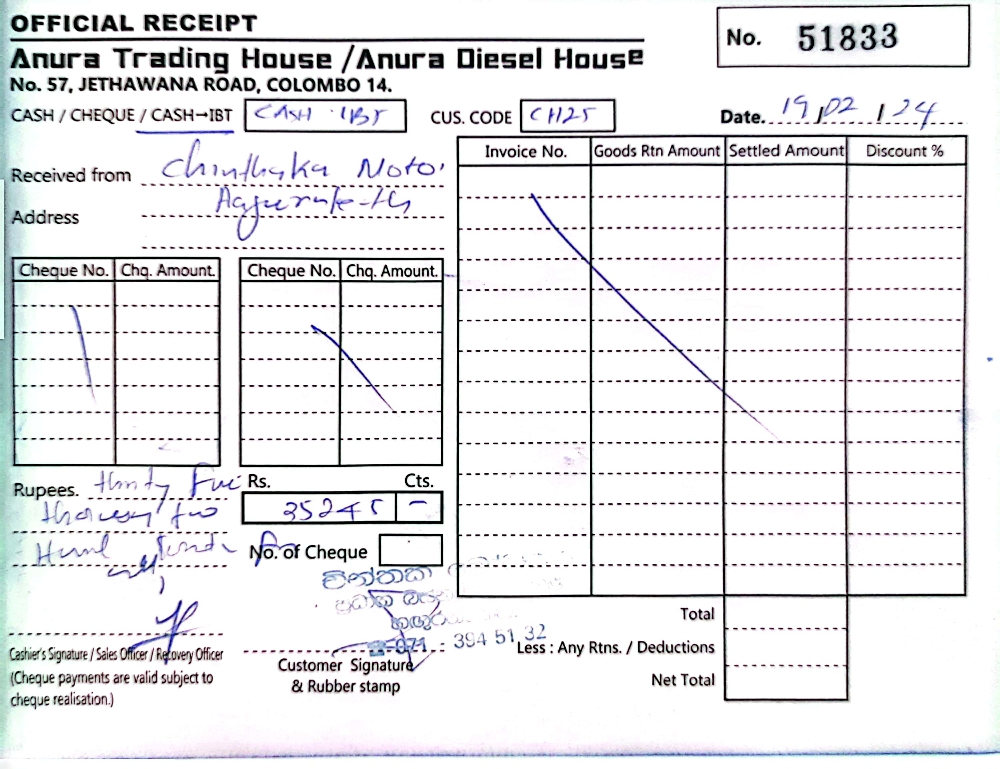 OFFICIAL RECEIPT
Anura Trading House / Anura Diesel House
No. 57, JETHAWANA ROAD, COLOMBO 14.
No. 51833
CASH / CHEQUE / CASH→IBT CASH IBT
CUS. CODE CH25
Date. 19/02/24
Received from Chinthaka Moto
Address
Invoice No. Goods Rtn Amount Settled Amount Discount %
Cheque No. Chq. Amount. Cheque No. Chq. Amount.
Rupees. thirty Five
thousand two
Rs. Cts.
35245 -
No. of Cheque
චින්තක
071 - 394 51 32
Cashier's Signature / Sales Officer / Recovery Officer
(Cheque payments are valid subject to
cheque realisation.)
Customer Signature
& Rubber stamp
Total
Less : Any Rtns. / Deductions
Net Total